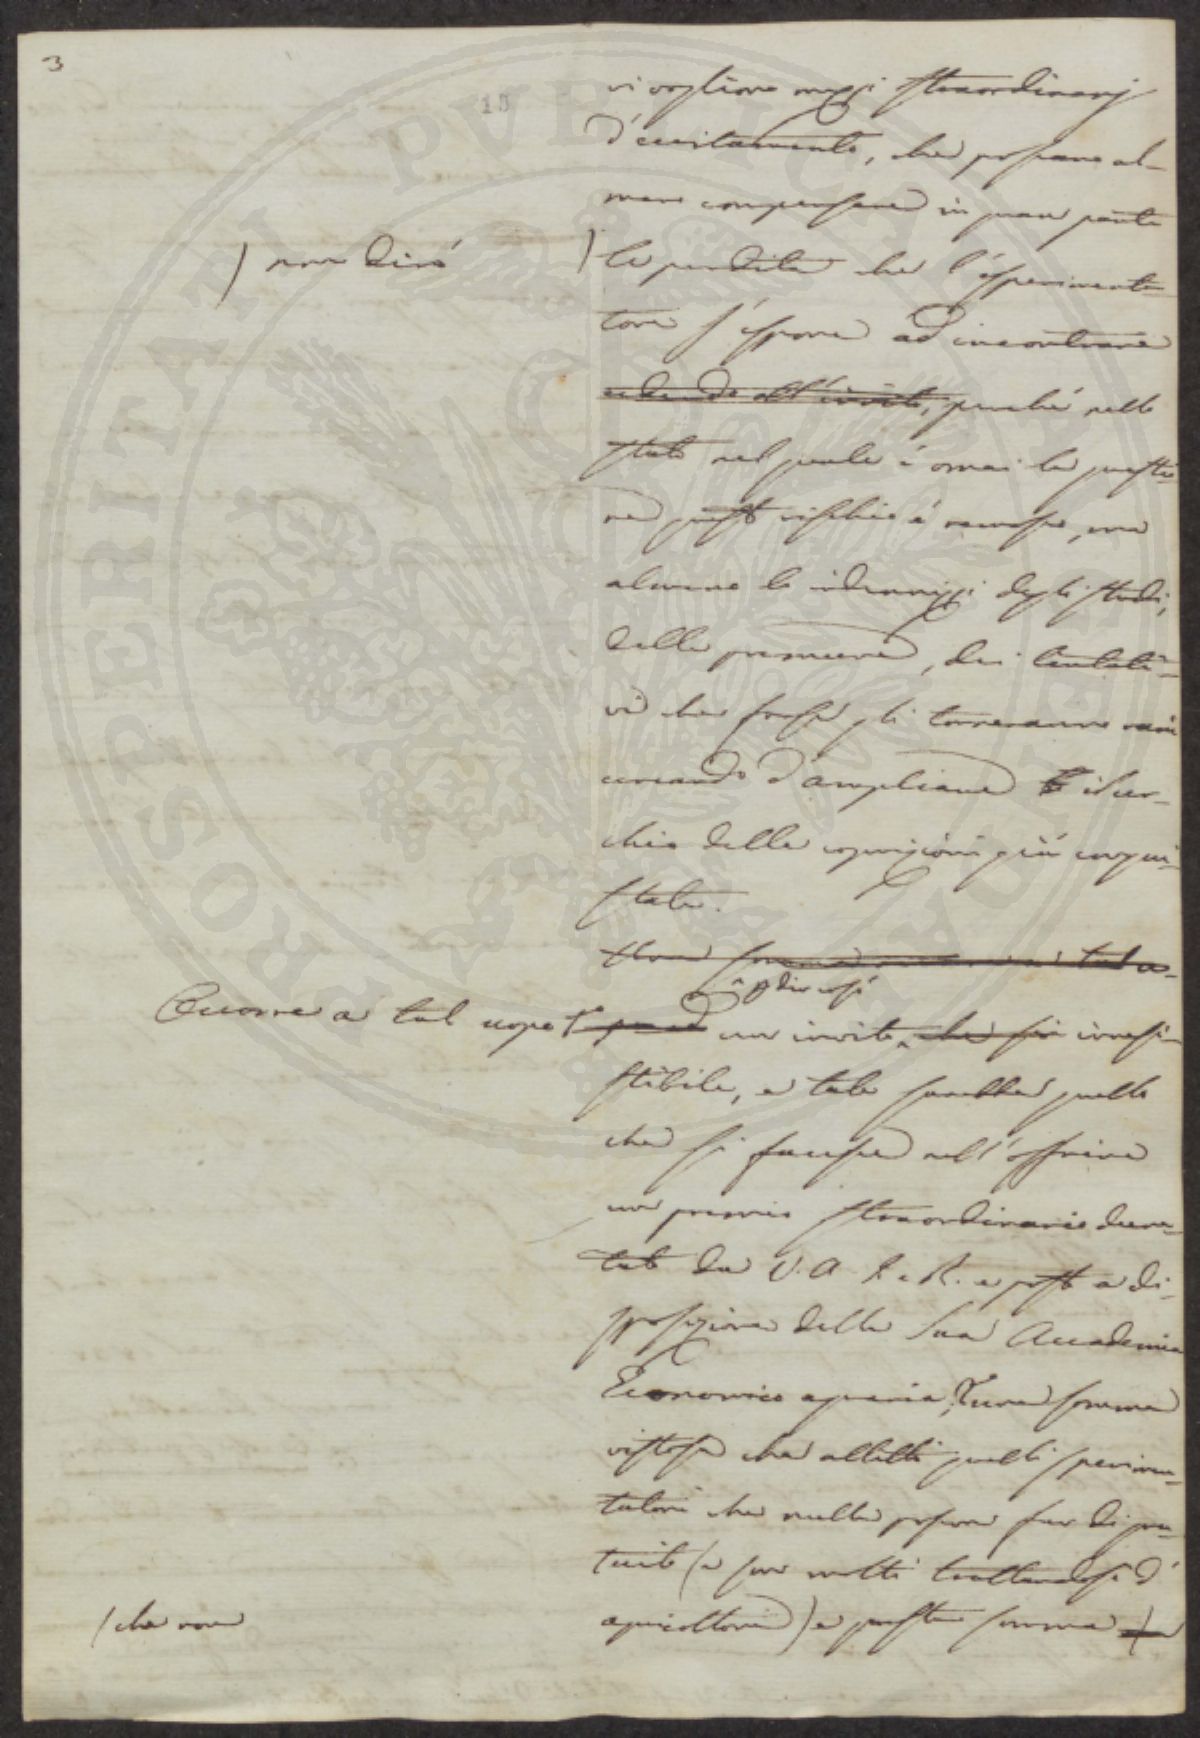 3
13
vi vogliono mezzi straordinarj
d'eccitamento, che possano al-
meno compensare in gran parte
) non dirò
) le perdite che l'esperimenta-
tore s'espone ad incontrare
cedendo all'invito, perché nello
stato nel quale è omai la questio-
ne questo rischio è remoto, ma
almeno lo indennizzi degli studi,
delle premure, dei tentati-
vi che forse gli torneranno vani
cercando d'ampliare il cer-
chio delle cognizioni già acqui-
state.
^ p dir così
Occorre a tal uopo un invito che sia irresi-
stibile, e tale sarebbe quello
che si facesse nell'offrire
un premio straordinario decre-
tato da V. A. I. e R. e posto a di-
sposizione della Sua Accademia
Economico agraria, una somma
vistosa che alletti quelli sperimen-
tatori che nulla possono far di gra-
tuito (e son molti trattandosi d'
agricoltura) e questa somma
/ che non